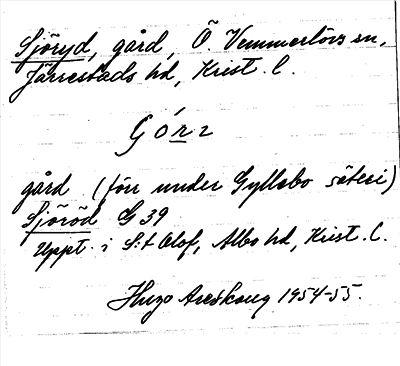 Sjöryd, gård, Ö. Vemmerlövs sn,
Järrestads hd, Krist. l.
gård (förr under Gyllebo säteri)
Sjöröd G 39
Uppt. i S:t Olof, Albo hd, Krist. l.
Hugo Areskoug 1954-55.